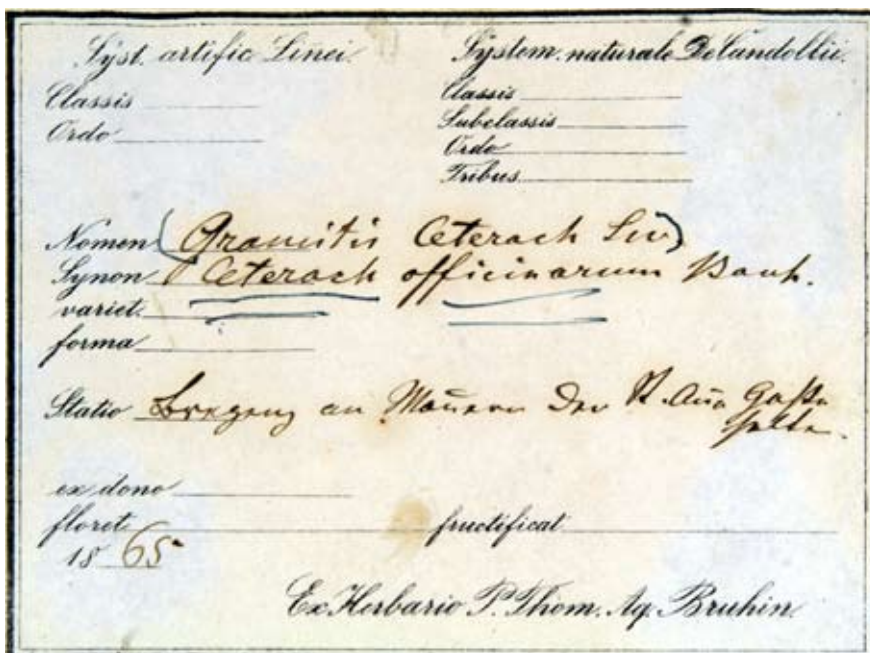 Syst. artific Linei. System. naturale DeCandollii.
Classis Classis
Ordo Subclassis
Ordo
Tribus
Nomen (Gramitis Ceterach Sw)
Synon Ceterach officinarum Bauh.
variet.
forma
Statio Bregenz an Mauern der St. Gaße
ex dono
floret fructificat
18 65
Ex Herbario P. Thom. Aq. Bruhin.